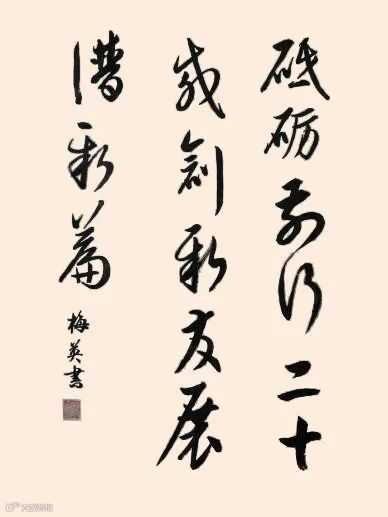 砥砺前行二十
载创新发展
谱新篇
梅英书